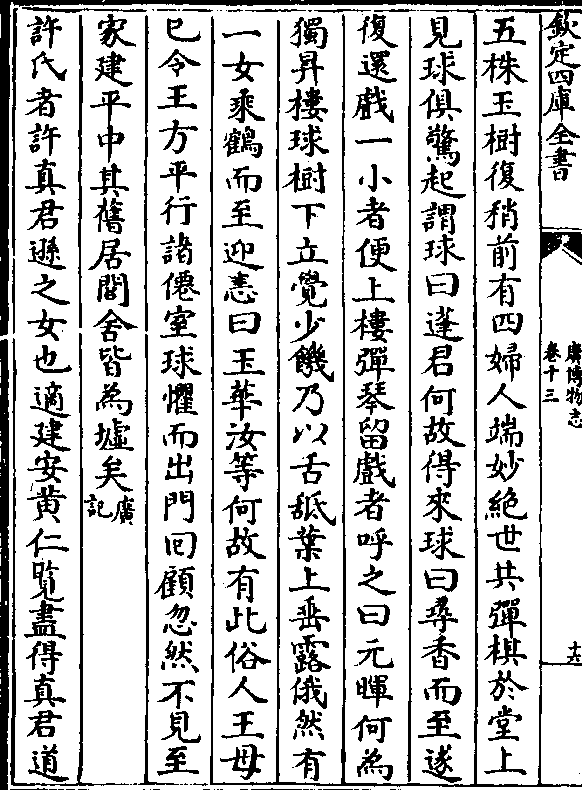 欽定四庫全書
廣博物志
卷十三
十六
五株玉樹復稍前有四婦人端妙絶世共彈棋於堂上
見球俱驚起謂球曰蓬君何故得來球曰尋香而至遂
復還戲一小者便上樓彈琴留戲者呼之曰元暉何為
獨昇樓球樹下立覺少饑乃以舌舐葉上垂露俄然有
一女乘鶴而至迎恚曰玉華汝等何故有此俗人王母
已令王方平行諸僊室球懼而出門回顧忽然不見至
家建平中其舊居閭舍皆為墟矣廣記
許氏者許真君遜之女也適建安黄仁覧盡得真君道